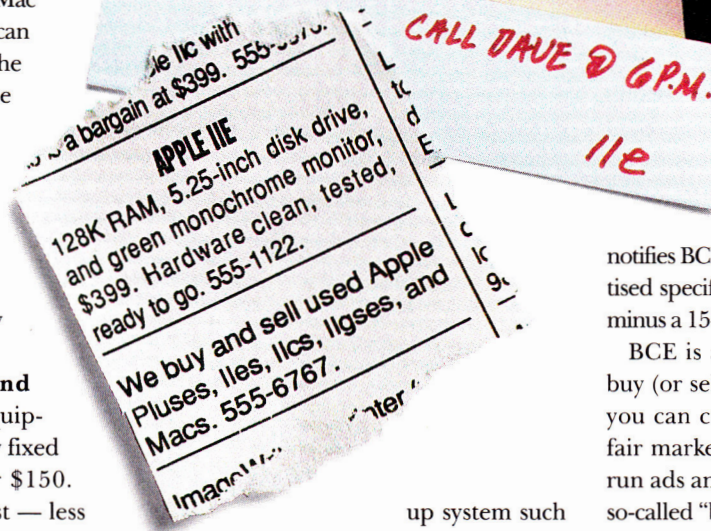 Mac
can
he
e
nd
uip-
fixed
$150.
st — less
le IIc with
a bargain at $399.
APPLE IIE
128K RAM, 5.25-inch disk drive,
and green monochrome monitor,
$399. Hardware clean, tested,
ready to go. 555-1122.
We buy and sell used Apple
Pluses, IIes, IIcs, IIgses, and
Macs. 555-6767.
L
d
E
CALL DAVE @ 6 P.M.
IIe
notifies BC
tised specif
minus a 15
BCE is
buy (or se
you can c
fair marke
run ads an
so-called "b
up system such